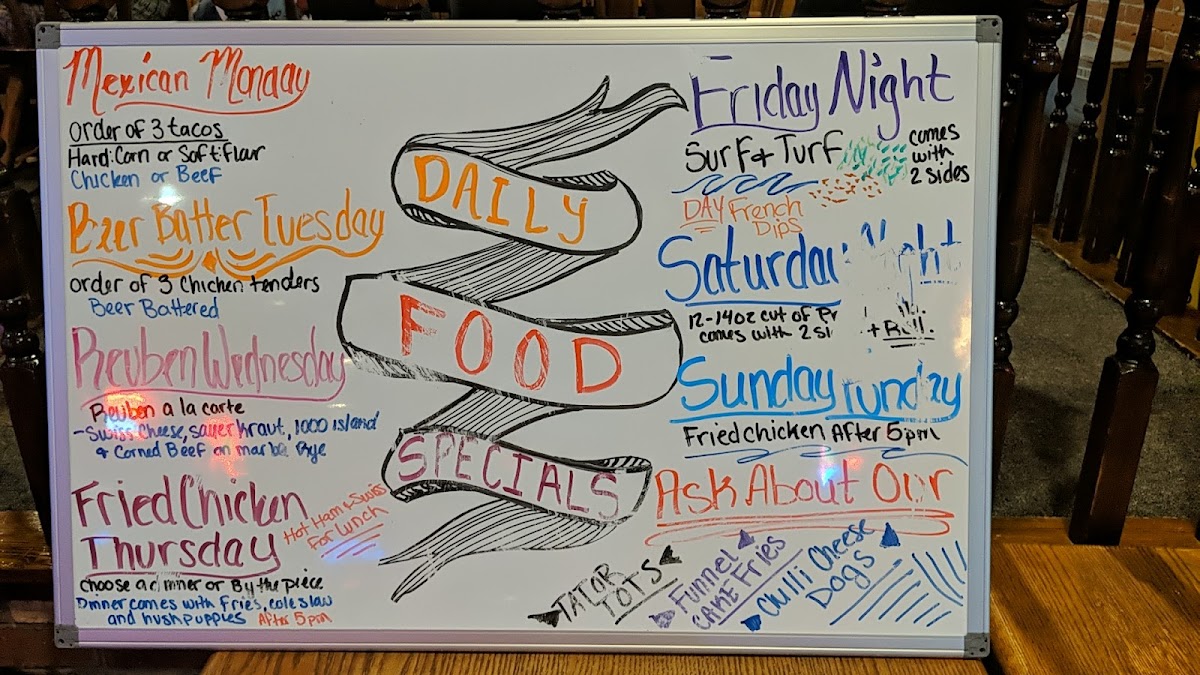 Mexican Monday
Order of 3 tacos
Hard: Corn or Soft: Flour
Chicken or Beef
Beer Batter Tuesday
order of 3 chicken tenders
Beer Battered
Reuben Wednesday
Reuben a la carte
- Swiss Cheese, sauerkraut, 1000 island
& Corned Beef on Rye
Fried Chicken
Thursday
Hot Ham & Swiss
For Lunch
choose a dinner or By the piece
Dinner comes with fries, coleslaw
and hushpuppies After 5pm
DAILY
FOOD
SPECIALS
Friday Night
Surf + Turf
comes
with
2 sides
DAY French
Dips
Saturday Night
12-14oz cut of
comes with 2 + Roll.
Sunday Funday
Fried chicken After 5pm
Ask About Our
TATOR
TOTS
Funnel
CAKE Fries
Chilli Cheese
Dogs